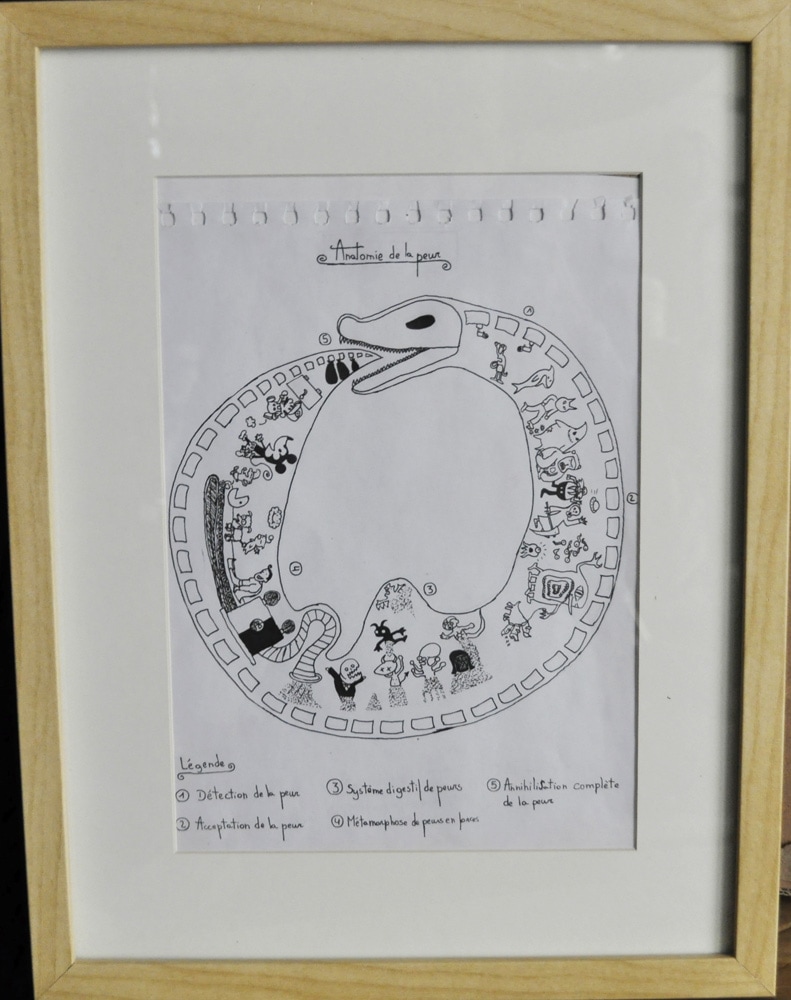 Anatomie de la peur
1
5
2
3
4
Légende
1 Détection de la peur
2 Acceptation de la peur
3 Système digestif de peurs
4 Métamorphose de peurs en forces
5 Annihilisation complète
de la peur